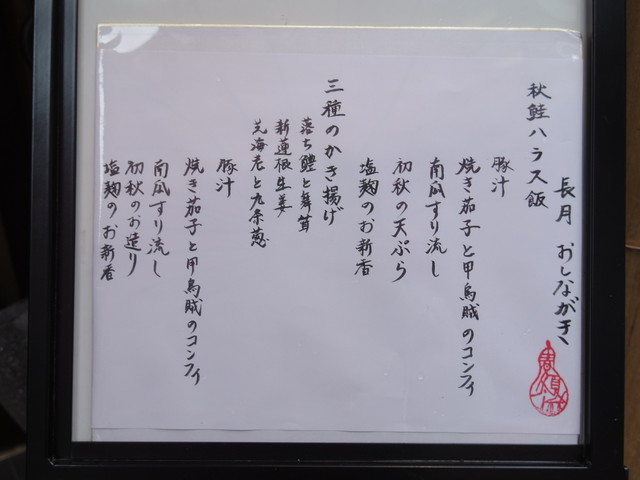 長月 おしながき
秋鮭ハラス飯
豚汁
焼き茄子と甲烏賊のコンフィ
南瓜すり流し
初秋の天ぷら
塩麹のお新香
三種のかき揚げ
落ち鱧と舞茸
新蓮根生姜
芝海老と九条葱
豚汁
焼き茄子と甲烏賊のコンフィ
南瓜すり流し
初秋のお造り
塩麹のお新香